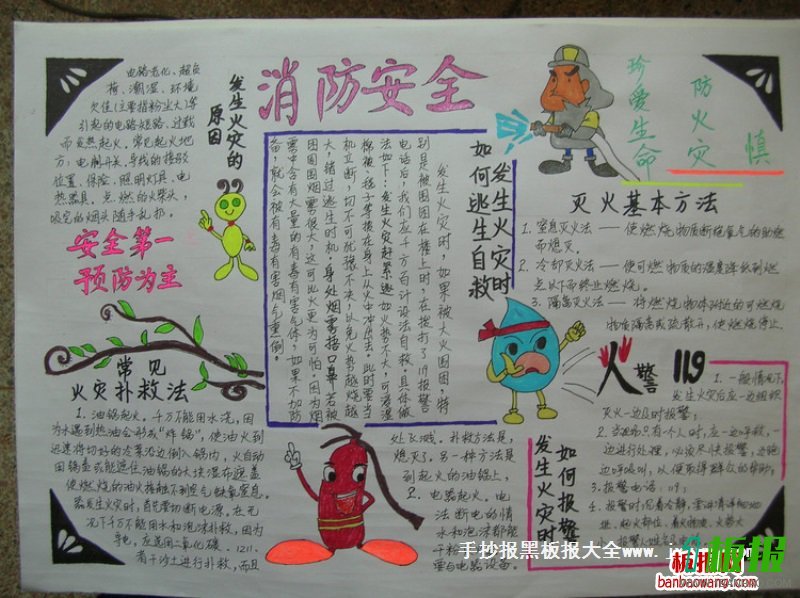 消防安全
电路老化、超负
荷、潮湿、环境
欠佳(主要指粉尘大)等
引起的电路短路、过载
而发热起火。常见起火地
方:电制开关、导线的接驳
位置、保险、照明灯具、电
热器具。点燃的火柴头,
吸完的烟头随手乱扔。
发生火灾的
原因
安全第一
预防为主
常见
火灾扑救法
1. 油锅起火。千万不能用水浇,因
为水遇到热油会形成"炸锅",使油火到
处飞溅。扑救方法是,
迅速将切好的冷菜沿边倒入锅内,火自动
熄灭了。另一种方法是
用锅盖或能遮住油锅的大块湿布遮盖
到起火的油锅上,
使燃烧的油火接触不到空气缺氧窒息。
2、电器起火。电
器发生火灾时,首先要切断电源。在无
法断电的情
况下千万不能用水和泡沫扑救,因为
水和泡沫都能
导电,应选用二氧化碳、1211、
干沙土进行扑救,而且
要与电器设备
发生火灾时
如何逃生自救
发生火灾时,如果被大火围困,特
别是被围困在楼上时,在拨打了119报警
电话后,我们应千方百计设法自救。具体做
法如下:发生火灾赶紧逃
大,错过逃生时机。身处烟雾捂口鼻
备,就会被有毒有害烟气熏倒。
珍爱生命
防火灾
慎
灭火基本方法
1. 窒息灭火法——使燃烧物质断绝氧气的助燃
而熄灭。
2. 冷却灭火法——使可燃物质的温度降低到燃
点以下而终止燃烧。
3. 隔离灭火法——将燃烧物体附近的可燃烧
物质隔离或疏散开,使燃烧停止。
火警119
1. 一般情况下,
发生火灾后应一边组织
灭火一边及时报警;
2. 当现场只有一个人时,应一边呼救,一
边进行处理,必须尽快报警,边跑
边呼叫,以便取得群众的帮助;
3. 报警电话:119;
4. 报警时沉着冷静,要讲清详细地
址、起火部位、着火物质、火势大
发生火灾时
如何报警
手抄报黑板报大全www.
板报
banbaowang.com